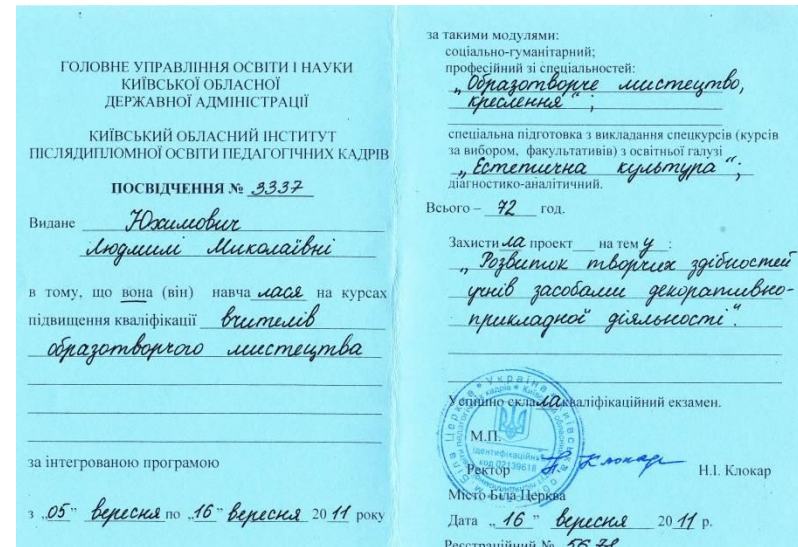 ГОЛОВНЕ УПРАВЛІННЯ ОСВІТИ І НАУКИ
КИЇВСЬКОЇ ОБЛАСНОЇ
ДЕРЖАВНОЇ АДМІНІСТРАЦІЇ
КИЇВСЬКИЙ ОБЛАСНИЙ ІНСТИТУТ
ПІСЛЯДИПЛОМНОЇ ОСВІТИ ПЕДАГОГІЧНИХ КАДРІВ
ПОСВІДЧЕННЯ № 3337
Видане Юхимович
Людмилі Миколаївні
в тому, що вона (він) навчалася на курсах
підвищення кваліфікації вчителів
образотворчого мистецтва
за інтегрованою програмою
з „05” вересня по „16” вересня 2011 року
за такими модулями:
соціально-гуманітарний;
професійний зі спеціальностей:
„Образотворче мистецтво,
креслення”;
спеціальна підготовка з викладання спецкурсів (курсів
за вибором, факультативів) з освітньої галузі
„Естетична культура”;
діагностико-аналітичний.
Всього – 72 год.
Захистила проект на тему:
„Розвиток творчих здібностей
учнів засобами декоративно-
прикладної діяльності”.
Успішно склала кваліфікаційний екзамен.
М.П.
Україна
Київська
Біла Церква
ідентифікаційний
код 02139618
Ректор Н. Клокар Н.І. Клокар
Місто Біла Церква
Дата „16” вересня 2011 р.
Реєстраційний № 5678